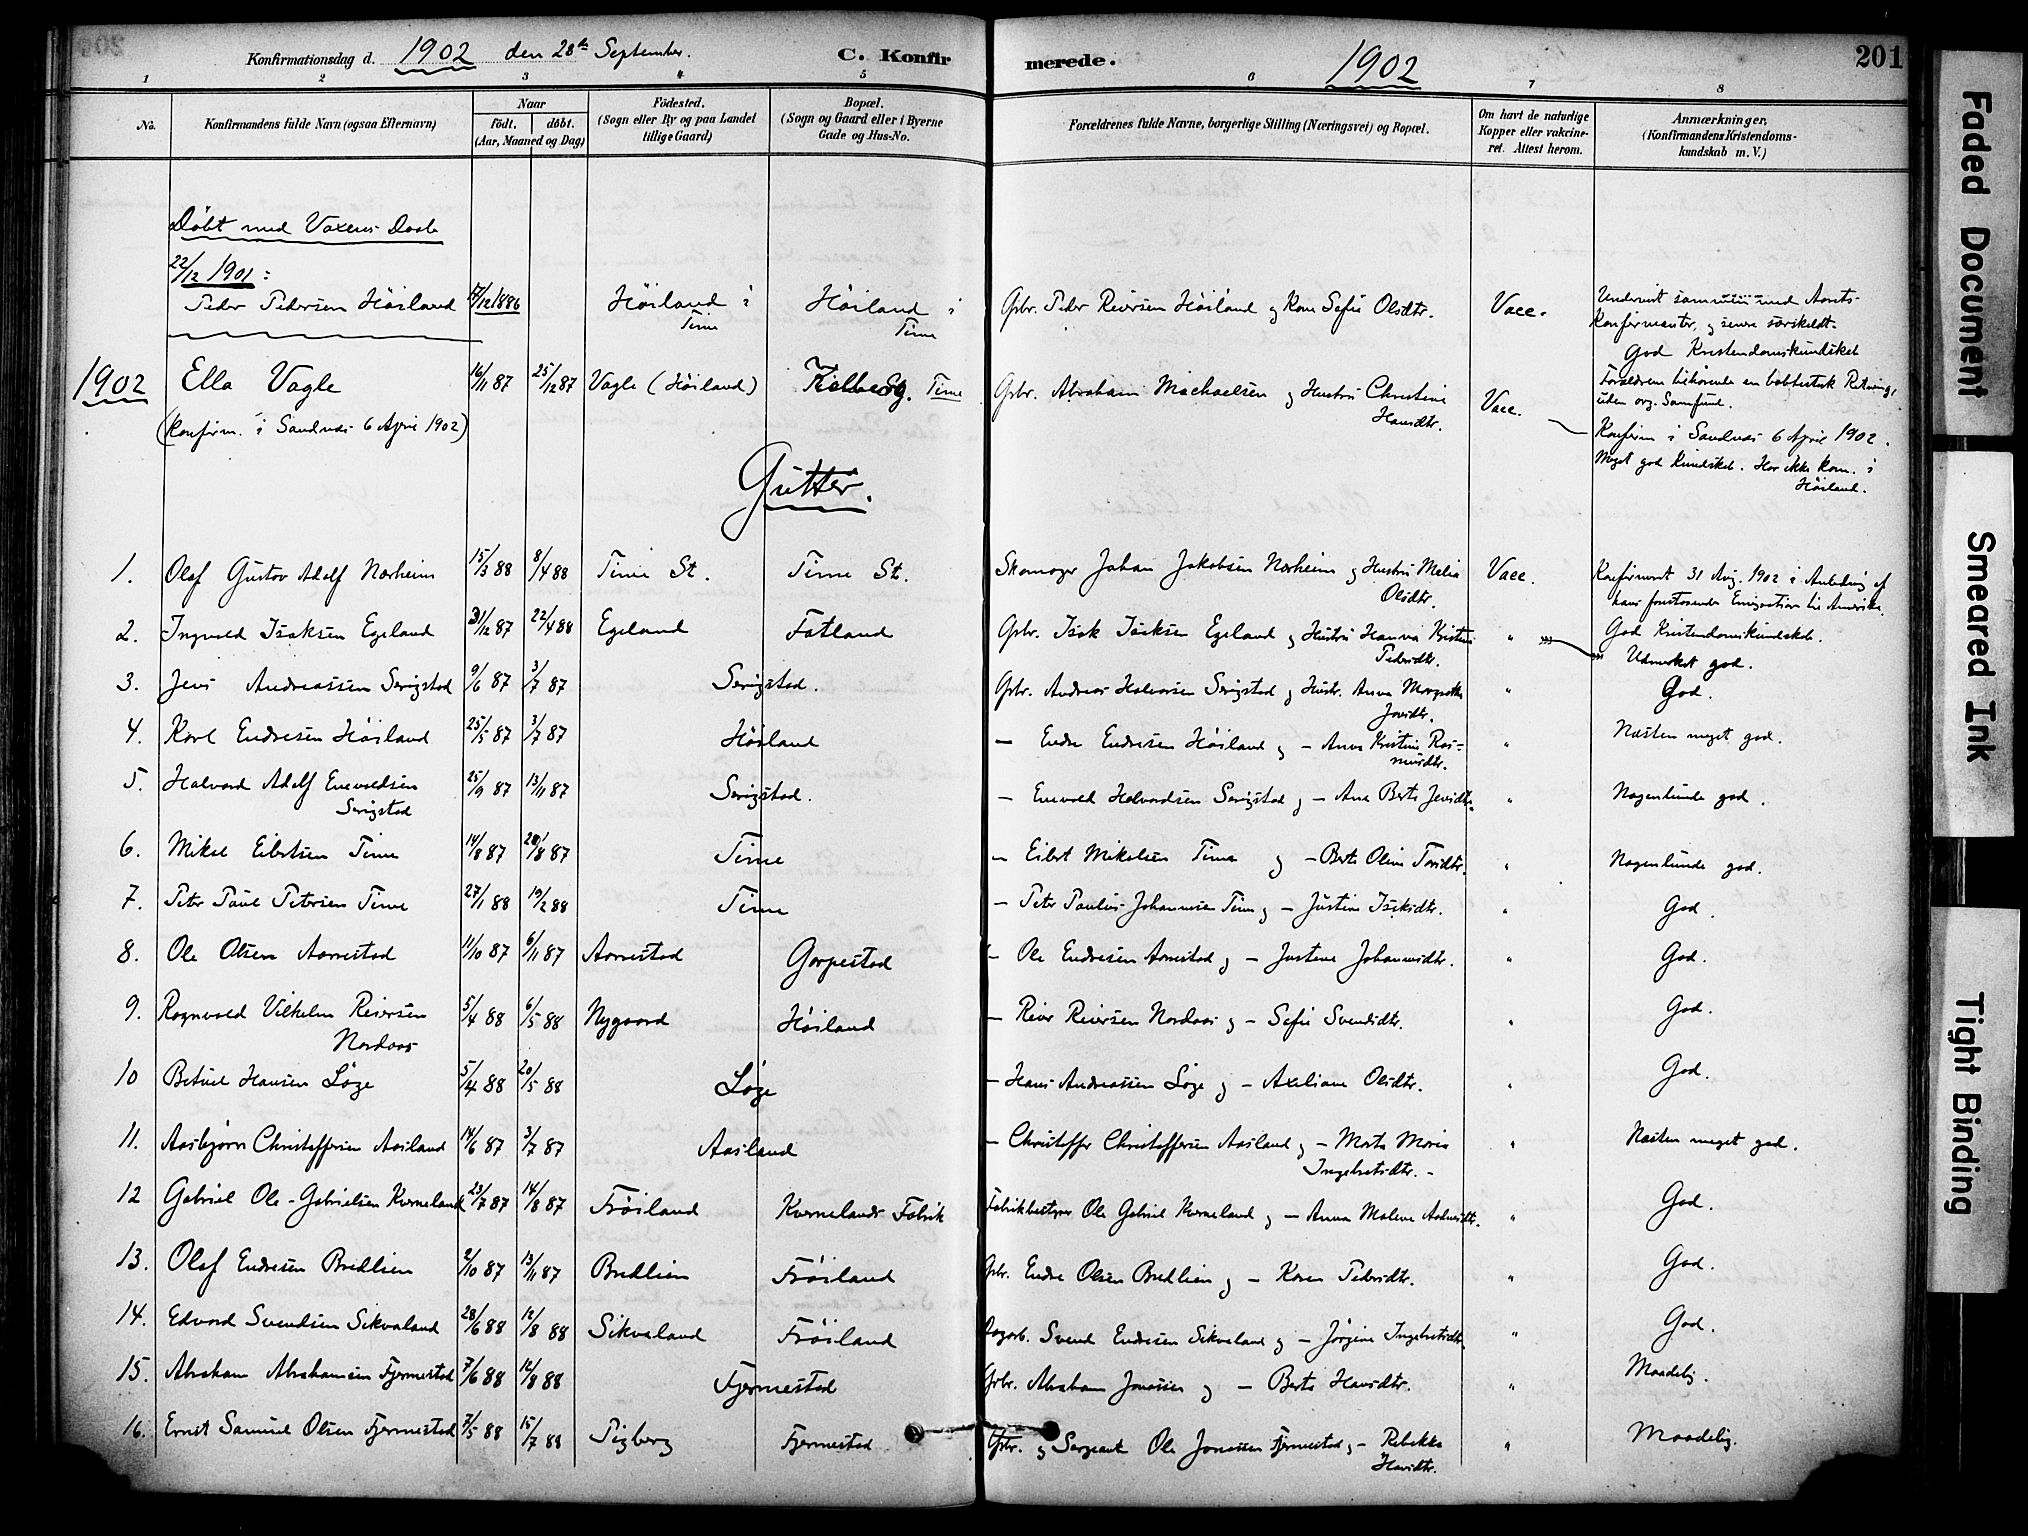 Konfirmationsdag d. 1902 den 28de September.
C. Konfirmerede.
1902
201
1 2 3 4 5 6 7 8
No.
Konfirmandens fulde Navn (ogsaa Efternavn)
Naar
födt. döbt.
(Aar, Maaned og Dag)
Födested.
(Sogn eller By og paa Landet
tillige Gaard)
Bopæl.
(Sogn og Gaard eller i Byerne
Gade og Hus-No.
Forældrenes fulde Navne, borgerlige Stilling (Næringsvei) og Bopæl.
Om havt de naturlige
Kopper eller vakcineret. Attest herom.
Anmærkninger.
(Konfirmandens Kristendomskundskab m. V.)
Döbt med Voxens Daab
22/12 1901:
Peder Pedersen Höiland /12 1886 Höiland i Time Höiland i Time Gbr. Peder Reiersen Höiland og Kone Sofie Olsdtr. Vacc.
Undervist sammen med Aarets
Konfirmanter, og senere særskildt.
God Kristendomskundskab
1902 Ella Vagle 16/11 87 25/12 87 Vagle (Höiland) Time Gbr. Abraham Michaelsen og Hustru Christine Hansdtr. Vacc.
(Konfirm. i Sandnes 6 April 1902)
Forældrene tilhörende en babtistisk Retning,
uden org. Samfund.
Konfirm i Sandnes 6 April 1902.
Meget god Kundskab. Har ikke kom. i
Höiland.
Gutter.
1. Olaf Gustav Adolf Norheim 15/3 88 8/4 88 Time St. Time St. Skomager Johan Jakobsen Norheim og Hustru Malia Olsdtr. Vacc.
Konfirmeret 31 Aug. 1902 i Anledning af
hans forestaaende Emigration til Amerika.
God Kristendomskundskab.
2. Ingvald Isaksen Egeland 31/12 87 22/4 88 Egeland Fotland Gbr. Isak Isaksen Egeland og Hustru Hanna Kristine Pedersdtr. " Udmerket god.
3. Jens Andreassen Serigstad 9/6 87 3/7 87 Serigstad. Gbr. Andreas Halvorsen Serigstad og Hustr. Anna Margrethe " God.
4. Karl Endresen Höiland 25/5 87 3/7 87 Höiland — Endre Endresen Höiland og — Anna Kristine Rasmusdtr. " Næsten meget god.
5. Halvard Adolf Enevoldsen Serigstad 25/9 87 13/11 87 Serigstad. — Enevold Halvordsen Serigstad og — Ane Berte Jensdtr. " Nogenlunde god.
6. Mikal Eilertsen Time 14/8 87 28/8 87 Time — Eilert Mikalsen Time og — Berte Oline Toresdtr. " Nogenlunde god.
7. Peter Paul Petersen Time 27/1 88 19/2 88 Time — Peter Paulus Johannesen Time og — Justine Isaksdtr. " God.
8. Ole Olsen Aarrestad 11/10 87 6/11 87 Aarrestad Garpestad — Ole Endresen Aarrestad og — Justine Johannesdtr. " God.
9. Ragnvald Vilhelm Reiersen Nordaas 5/4 88 6/5 88 Nygaard Höiland — Reier Reiersen Nordaas og — Sofie Svendsdtr. " God.
10 Betuel Hansen Löge 5/4 88 20/5 88 Löge — Hans Andreassen Löge og — Axeliane Olsdtr. " God.
11. Aasbjørn Christoffersen Aasland 14/6 87 3/7 87 Aasland — Christoffer Christoffersen Aasland og — Marta Maria Ingebretsdtr. — " Næsten meget god.
12 Gabriel Ole-Gabrielsen Kverneland 23/7 87 14/8 87 Fröiland Kvernelands Fabrik Fabrikbestyrer Ole Gabriel Kverneland og — Anna Malene Aadnesdtr. " God.
13. Olaf Endresen Bredlien 2/10 87 13/11 87 Bredlien Fröiland Gbr. Endre Olsen Bredlien og — Karen Pedersdtr. " God.
14. Edvard Svendsen Sikvaland 28/6 88 12/8 88 Sikvaland Fröiland Dagarb. Svend Endresen Sikvaland og — Jörgine Ingebretsdtr. " God.
15. Abraham Abrahamsen Fjermestad 7/6 88 12/8 88 Fjermestad Gbr. Abraham Jonassen og — Berte Hansdtr. " Maadelig.
16. Ernst Samuel Olsen Fjermestad 7/5 88 15/7 88 Tigberg Fjermestad Gbr. og Sergeant Ole Jonassen Fjermestad og — Rebekka Hansdtr. " Maadelig.
Faded Document
Smeared Ink
Tight Binding